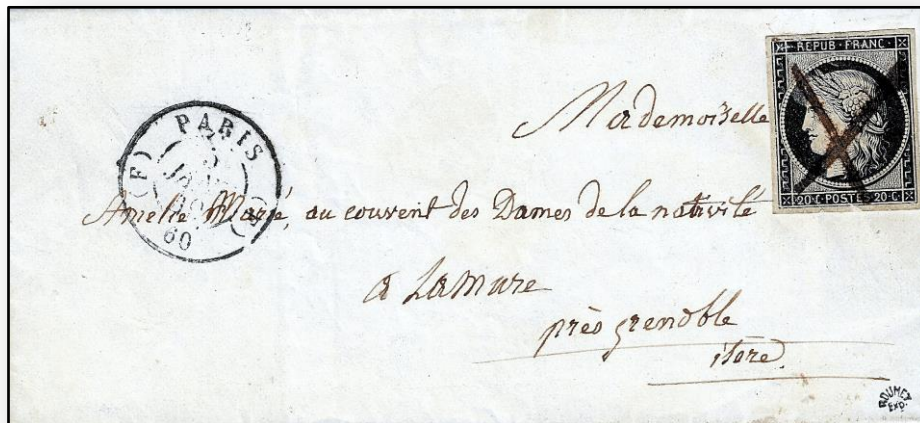 REPUB·FRANC·
20·C·POSTES·20·C·
PARIS
(F)
60
Mademoiselle
Amelie Marié, au couvent des Dames de la nativité
a Lamure
près grenoble
isère
ROUMET
Exp.